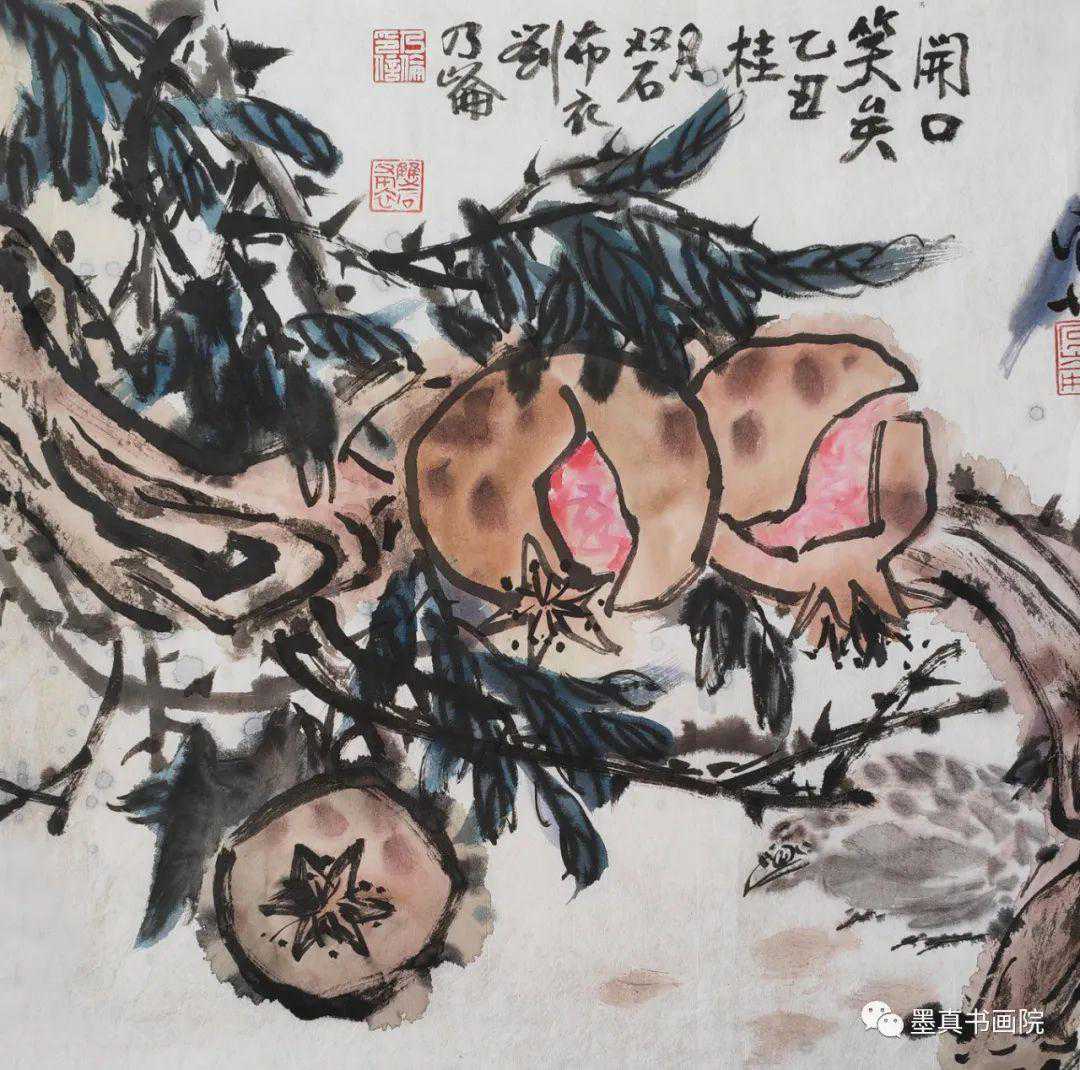 開口
笑矣
乙丑
桂
月
双石
布衣
劉
乃崙
墨真书画院